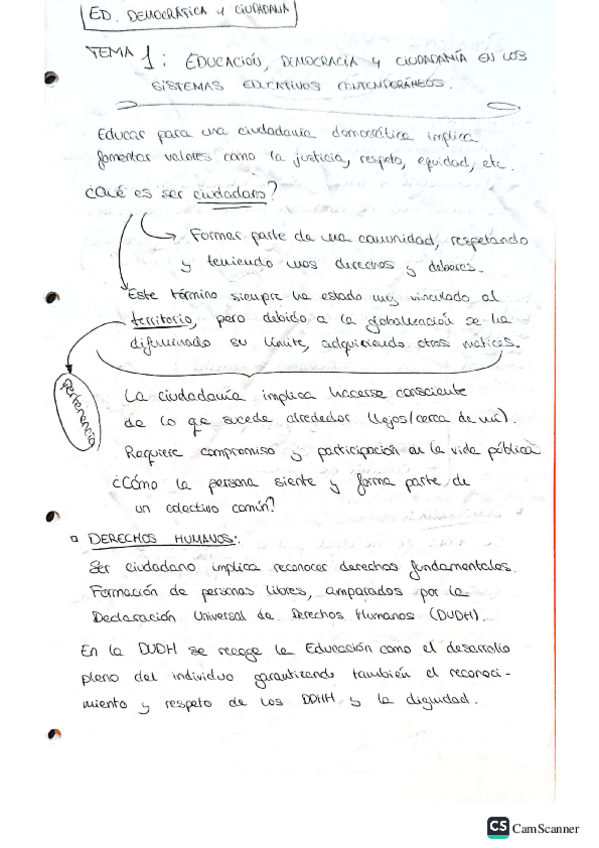 ED. DEMOCRÁTICA y CIUDADANA
TEMA 1: EDUCACIÓN, DEMOCRACIA y CIUDADANÍA EN LOS
SISTEMAS EDUCATIVOS CONTEMPORÁNEOS.
Educar para una ciudadanía democrática implica
fomentar valores como la justicia, respeto, equidad, etc.
¿Qué es ser ciudadano?
Formar parte de una comunidad, respetando
y teniendo unos derechos y deberes.
Este término siempre ha estado muy vinculado al
territorio, pero debido a la globalización se ha
difuminado su límite, adquiriendo otros matices.
pertenencia
La ciudadanía implica hacerse consciente
de lo que sucede alrededor (lejos/cerca de mí).
Requiere compromiso y participación en la vida pública
¿Cómo la persona siente y forma parte de
un colectivo común?
DERECHOS HUMANOS:
Ser ciudadano implica reconocer derechos fundamentales.
Formación de personas libres, amparados por la
Declaración Universal de Derechos Humanos (DUDH).
En la DUDH se recoge la Educación como el desarrollo
pleno del individuo garantizando también el reconoci-
miento y respeto de los DDHH y la dignidad.
CS CamScanner